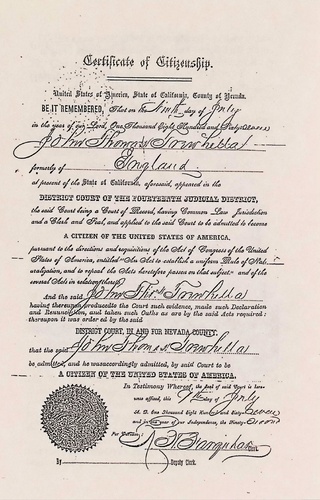 Certificate of Citizenship.
United States of America, State of California, County of Nevada.
BE IT REMEMBERED, That on the Ninth day of July
in the year of our Lord, One Thousand Eight Hundred and Sixty Seven
John Thomas
formerly of England
at present of the State of California, aforesaid, appeared in the
DISTRICT COURT OF THE FOURTEENTH JUDICIAL DISTRICT,
the said Court being a Court of Record, having Common Law Jurisdiction
and a Clerk and Seal, and applied to the said Court to be admitted to become
A CITIZEN OF THE UNITED STATES OF AMERICA,
pursuant to the directions and requisitions of the Act of Congress of the United
States of America, entitled "An Act to establish a uniform Rule of Nat-
uralization, and to repeal the Acts heretofore passed on that subject" and of the
several Acts in relation thereto
And the said John Thos
having thereupon produced to the Court such evidence, made such Declaration
and Renunciation, and taken such Oaths as are by the said Acts required:
thereupon it was ordered by the said
DISTRICT COURT, IN AND FOR NEVADA COUNTY,
that the said John Thomas
be admitted, and he was accordingly admitted, by said Court to be
A CITIZEN OF THE UNITED STATES OF AMERICA.
In Testimony Whereof, the Seal of said Court is here-
unto affixed, this 9th day of July
A. D. One Thousand Eight Hundred and Sixty Seven
and in the year of our Independence, the Ninety Second
Clerk.
By Deputy Clerk.